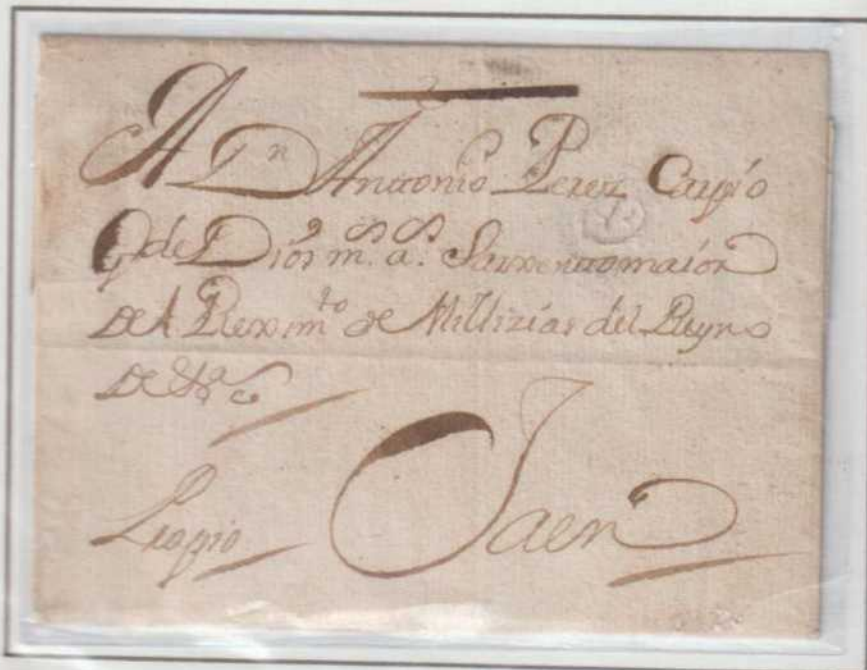 A Dn Antonio Perez Carpio
Qe gde Dios ms as Sarxento maior
de el Rexmto de Millizias del Reyno
de &a
Propio Jaen